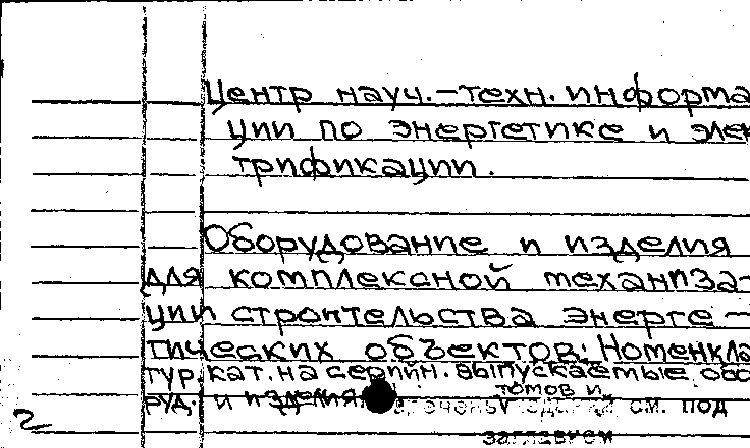 Центр науч.-техн. информа
ции по энергетике и элек
трификации.
Оборудование и изделия
для комплексной механиза-
ции строительства энерге-
тических объектов: Номенкла
тур. кат. на серийн. выпускаемые обо
руд. и изделия
томов и
см. под
заглавием
2